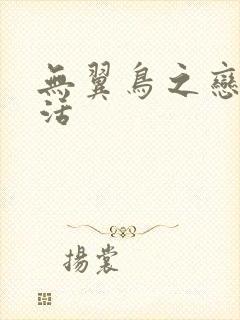 無翼鳥之戀
活
揚裳